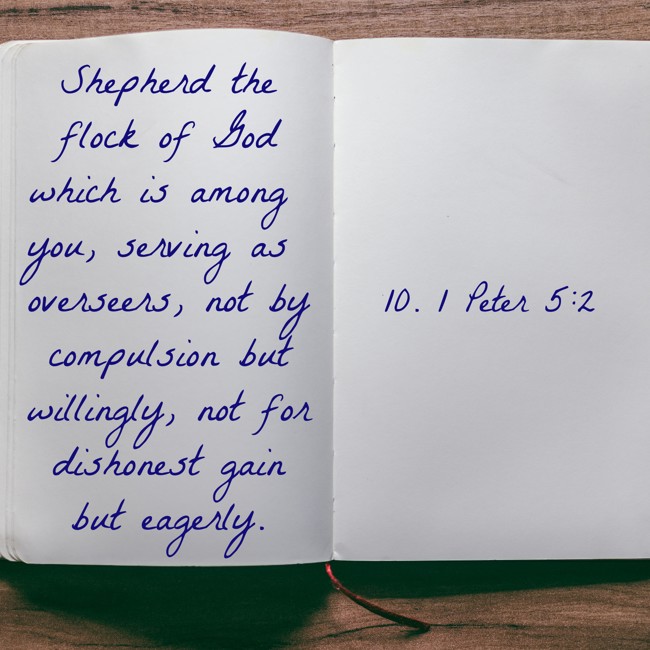 Shepherd the
flock of God
which is among
you, serving as
overseers, not by
compulsion but
willingly, not for
dishonest gain
but eagerly.
10. 1 Peter 5:2